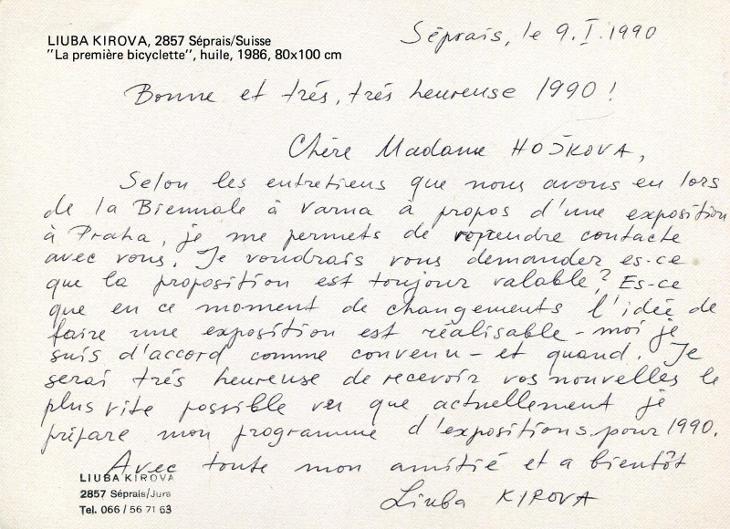 LIUBA KIROVA, 2857 Séprais/Suisse
"La première bicyclette", huile, 1986, 80x100 cm
Séprais, le 9.I.1990
Bonne et trés, trés heureuse 1990!
Chère Madame HOŠKOVA,
Selon les entretiens que nous avons eu lors
de la Biennale à Varna à propos d'une exposition
à Praha, je me permets de reprendre contacte
avec vous. Je voudrais vous demander es-ce
que la proposition est toujour valable? Es-ce
que en ce moment de changements l'idée de
faire une exposition est réalisable - moi je
suis d'accord comme convenu - et quand. Je
serai trés heureuse de recevoir vos nouvelles le
plus vite possible vu que actuellement je
prépare mon programme d'expositions pour 1990.
Avec toute mon amitié et a bientôt
Liuba KIROVA
LIUBA KIROVA
2857 Séprais/Jura
Tel. 066 / 56 71 63